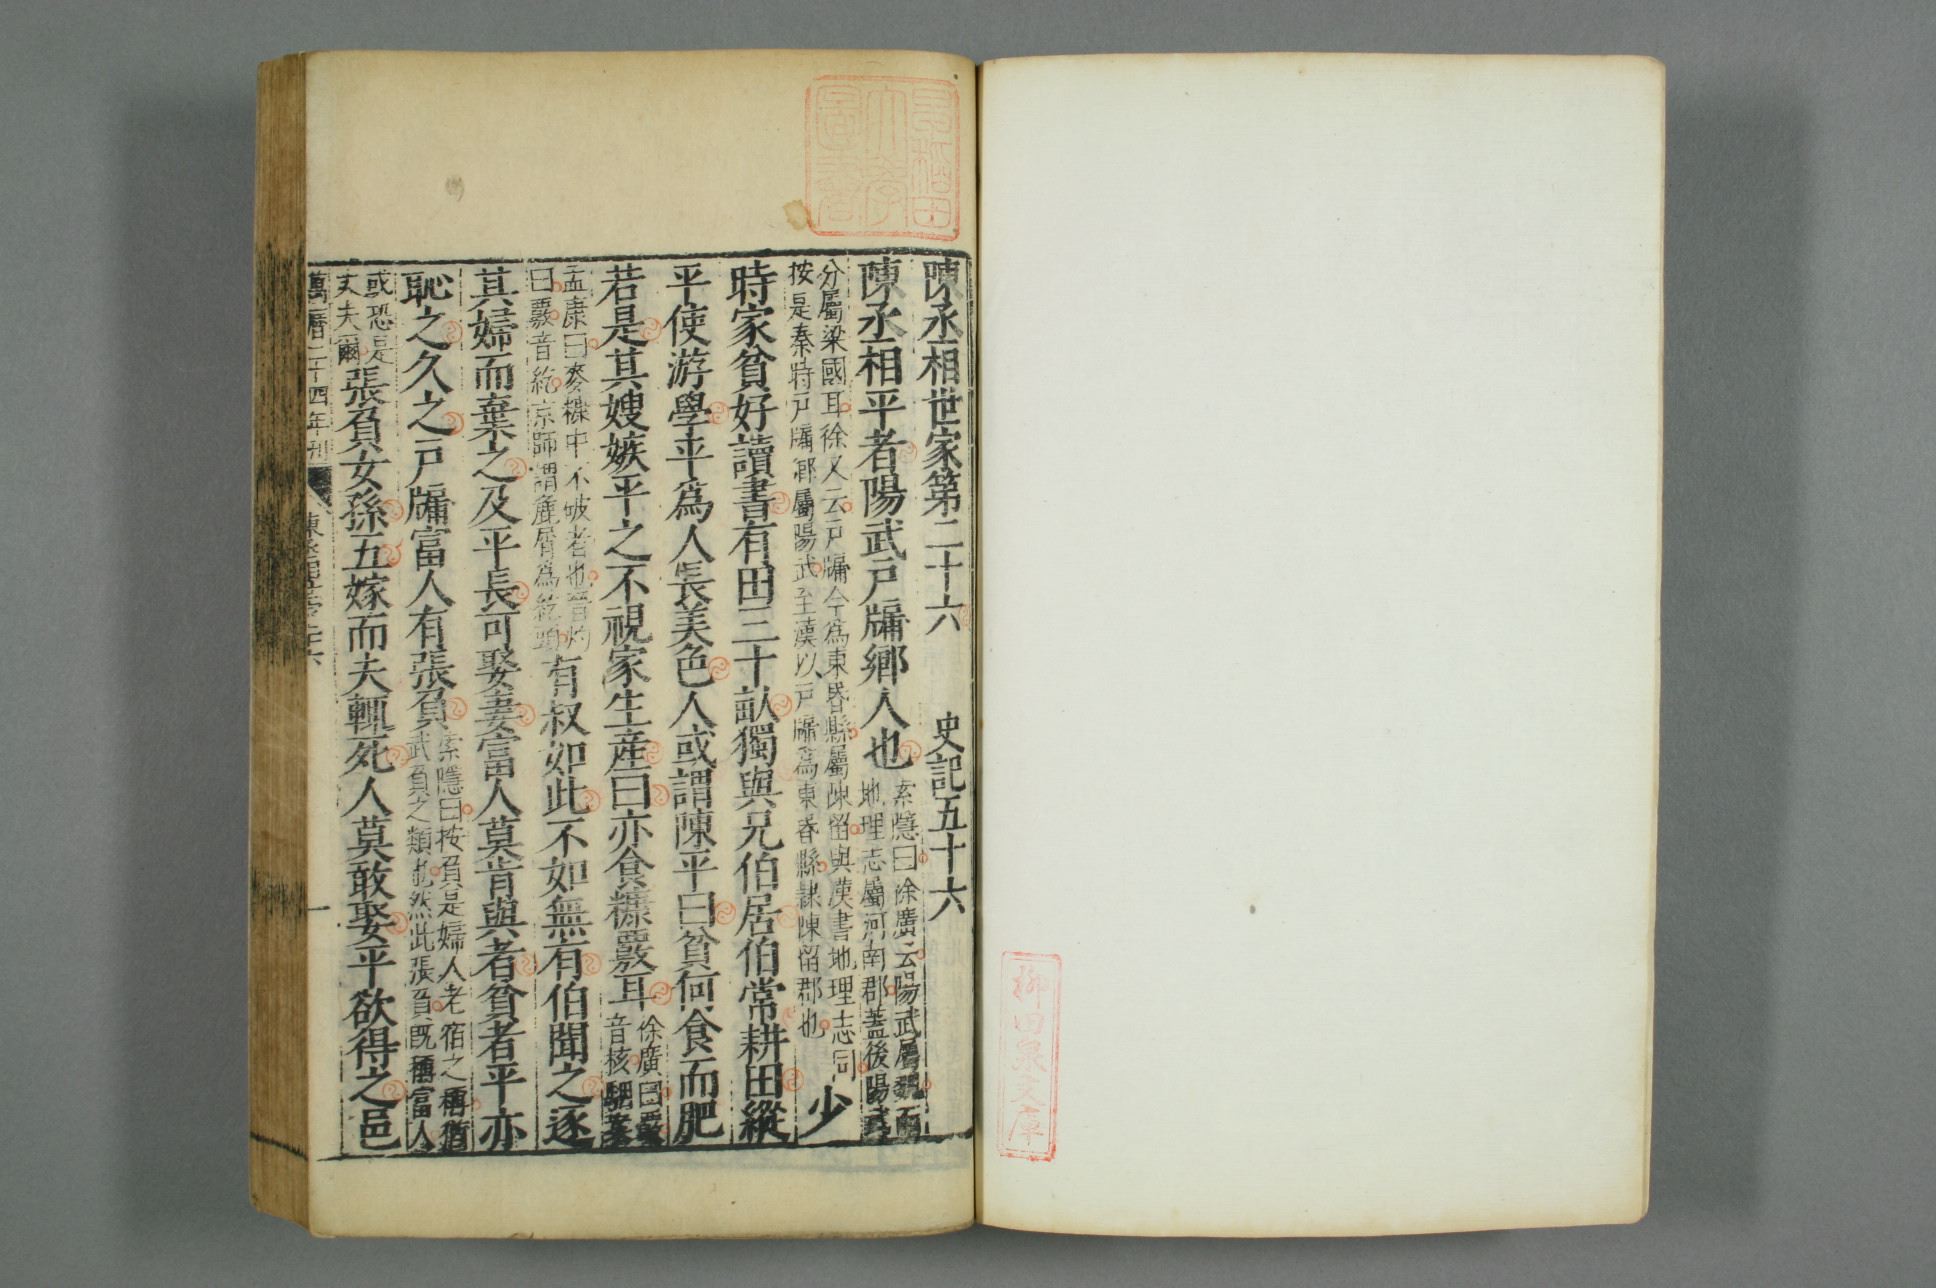 陳丞相世家第二十六　史記五十六
陳丞相平者陽武戸牖鄉人也
索隱曰徐廣云陽武屬魏而
地理志屬河南郡蓋後陽武
分屬梁國耳徐又云戸牖今為東昬縣屬陳留與漢書地理志同
按是秦時戸牖鄉屬陽武至漢以戸牖為東昬縣隷陳留郡也
少
時家貧好讀書有田三十畝獨與兄伯居伯常耕田縱
平使游學平為人長美色人或謂陳平曰貧何食而肥
若是其嫂嫉平之不視家生産曰亦食糠覈耳
徐廣曰覈
音核駰案
孟康曰麥糠中不破者也晉灼
曰覈音紇京師謂麄屑為紇頭
有叔如此不如無有伯聞之逐
其婦而棄之及平長可娶妻富人莫肯與者貧者平亦
恥之久之戸牖富人有張負
索隱曰按負是婦人老宿之稱猶
武負之類也然此張負既稱富人
或恐是
丈夫爾
張負女孫五嫁而夫輒死人莫敢娶平欲得之邑
萬曆二十四年刊
陳丞相世家二十六
一
柳田泉文庫